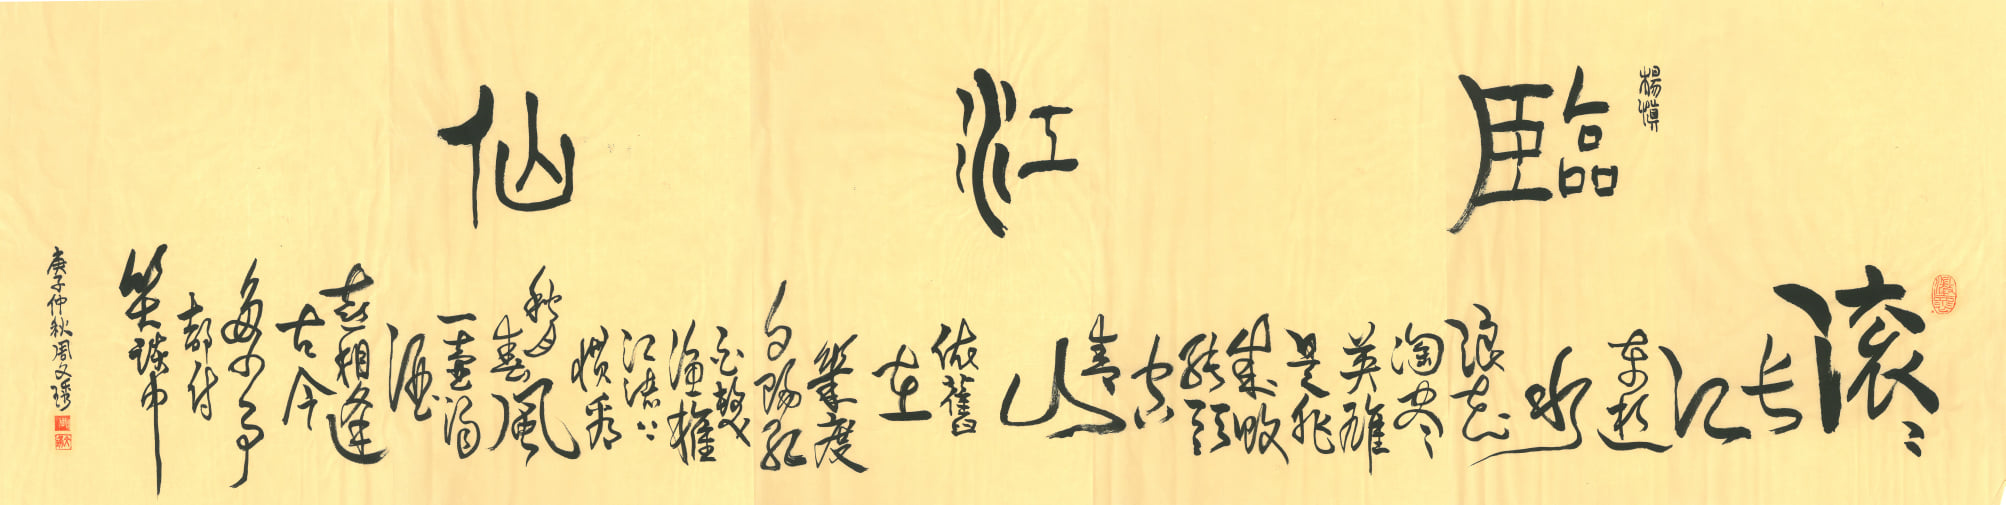 臨江仙
楊慎
滚〻
长
江
东逝
水
浪花
淘尽
英雄
是非
成敗
转頭
空
青
山
依舊
在
幾度
夕陽红
白髮
渔樵
江渚上
惯看
秋月
春風
一壶濁
酒
喜相逢
古今
多少事
都付
笑談中
庚子仲秋周文